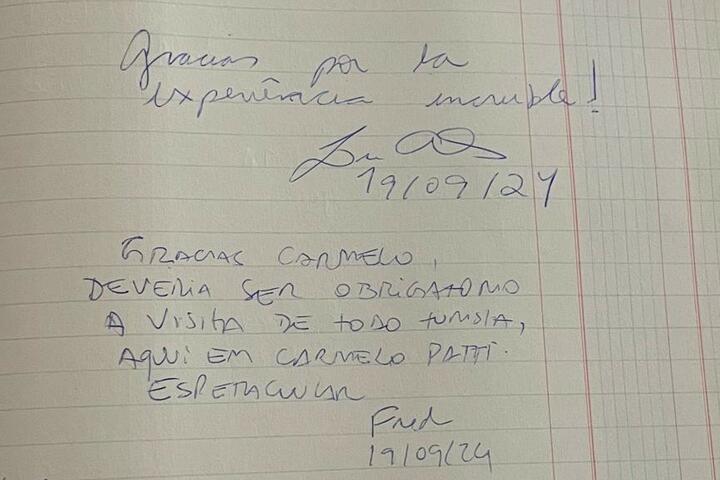 Gracias por la
experiência increible!
19/09/24
GRACIAS CARMELO,
DEVERIA SER OBRIGATORIO
A VISITA DE TODO TURISTA,
AQUI EM CARMELO PATTI.
ESPETACULAR
Fred
19/09/24